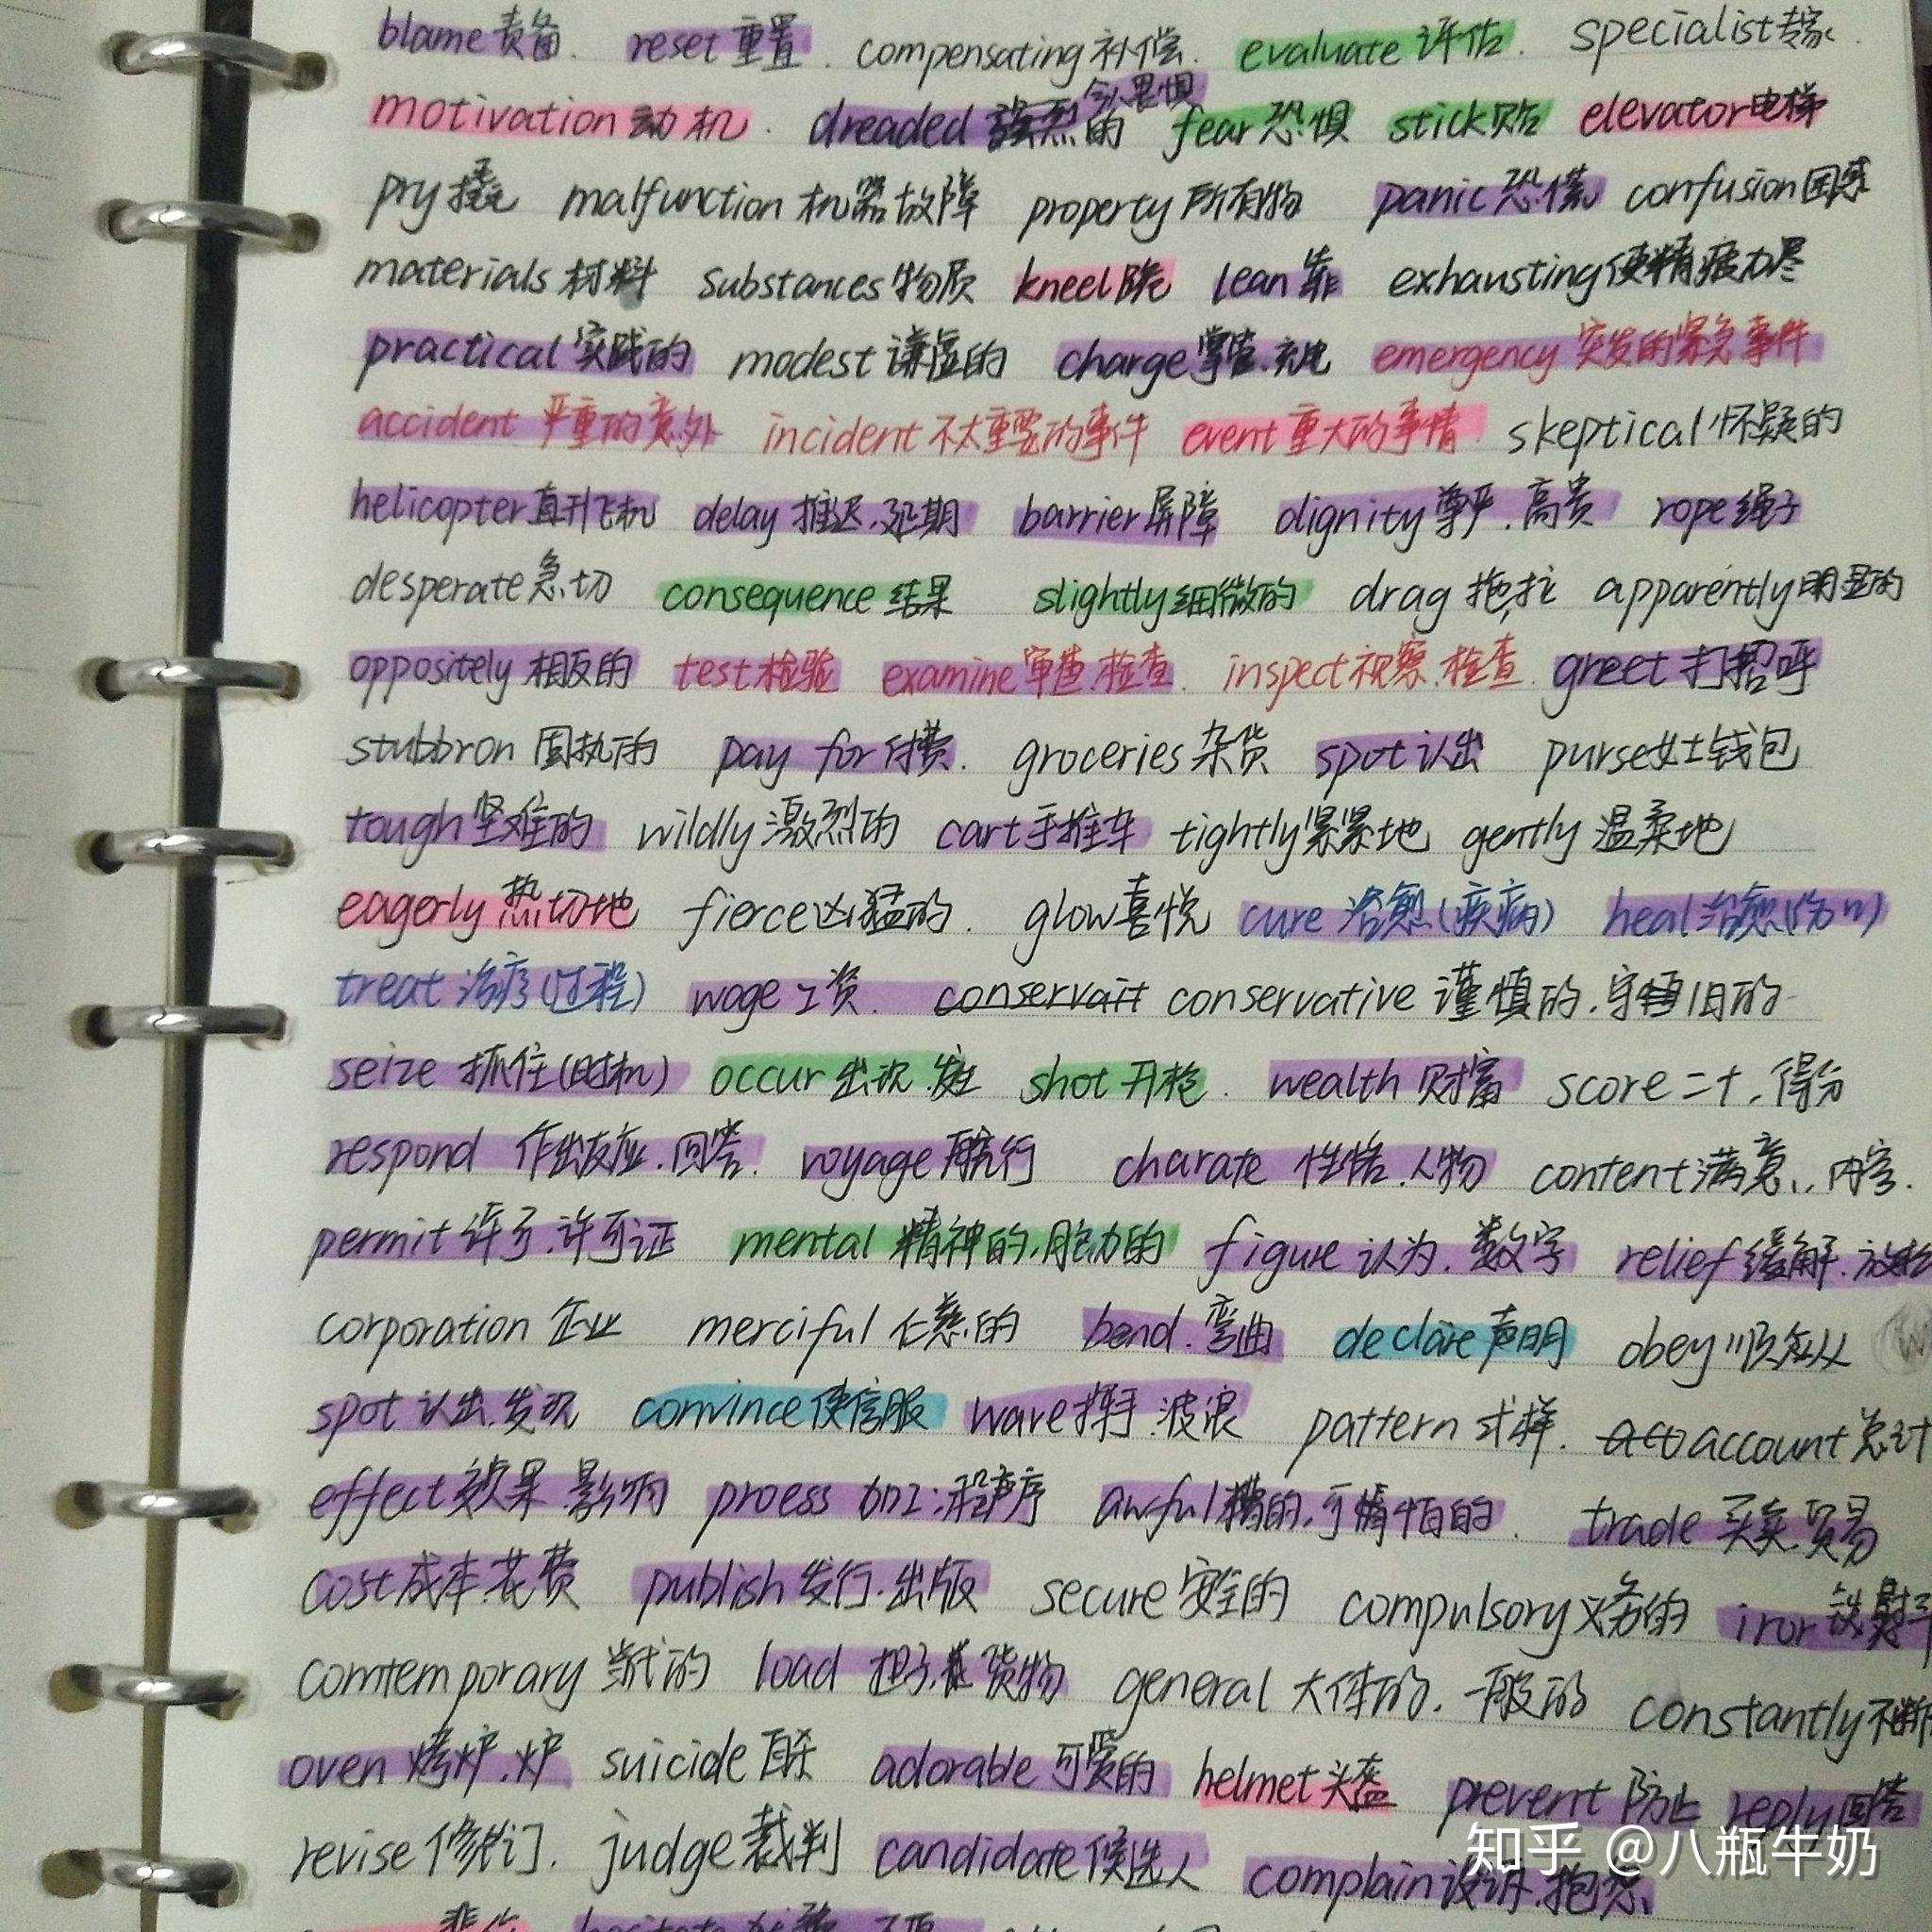 blame 责备. reset 重置. compensating 补偿. evaluate 评估. specialist 专家.
motivation 动机. dreaded 强烈的 令人畏惧 fear 恐惧 stick 贴 elevator 电梯
pry 撬 malfunction 机器故障 property 所有物 panic 恐慌 confusion 困惑
materials 材料 substances 物质 kneel 跪 lean 靠 exhausting 使精疲力尽
practical 实践的 modest 谦虚的 charge 掌管.充电 emergency 突发的紧急事件
accident 严重的意外 incident 不太重要的事件 event 重大的事情. skeptical 怀疑的
helicopter 直升飞机 delay 推迟.延期 barrier 屏障 dignity 尊严.高贵 rope 绳子
desperate 急切 consequence 结果 slightly 细微的 drag 拖,拉 apparently 明显的
oppositely 相反的 test 检验 examine 审查.检查. inspect 视察.检查. greet 打招呼
stubbron 固执的 pay for 付费. groceries 杂货 spot 认出 purse 女士钱包
tough 坚难的 wildly 激烈的 cart 手推车 tightly 紧紧地 gently 温柔地
eagerly 热切地 fierce 凶猛的. glow 喜悦 cure 治愈(疾病) heal 治愈(伤口)
treat 治疗(过程) wage 工资. conservative 谨慎的.守旧的
seize 抓住(时机) occur 出现.发生 shot 开枪. wealth 财富 score 二十.得分
respond 作出反应.回答. voyage 航行 charate 性格.人物 content 满意.,内容.
permit 许可.许可证 mental 精神的,脑力的 figure 认为.数字 relief 缓解.放松
corporation 企业 merciful 仁慈的 bend.弯曲 declare 声明 obey 顺从
spot 认出.发现 convince 使信服 wave 挥手.波浪 pattern 式样. account 总计
effect 效果.影响 proess 加工;程序 awful 糟的,可怕的. trade 买卖.贸易
cost 成本.花费 publish 发行.出版 secure 安全的 compulsory 义务的 铁.熨斗
comtemporary 当代的 load 担子.货物 general 大体的.一般的 constantly 不断
oven 烤炉.炉 suicide 自杀 adorable 可爱的 helmet 头盔 prevent 防止 reply 回答
revise 修订. judge 裁判 candidate 候选人 complain 投诉.抱怨.
知乎 @八瓶牛奶